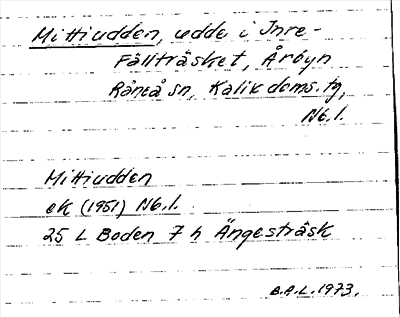 Mittiudden, udde i Inre-
Fällträsket, Årbyn
Råneå sn, Kalix doms. tg,
Nb.l.
Mittiudden
ek (1951) Nb.l.
25 L Boden 7 h Ängesträsk
B.A.L. 1973.